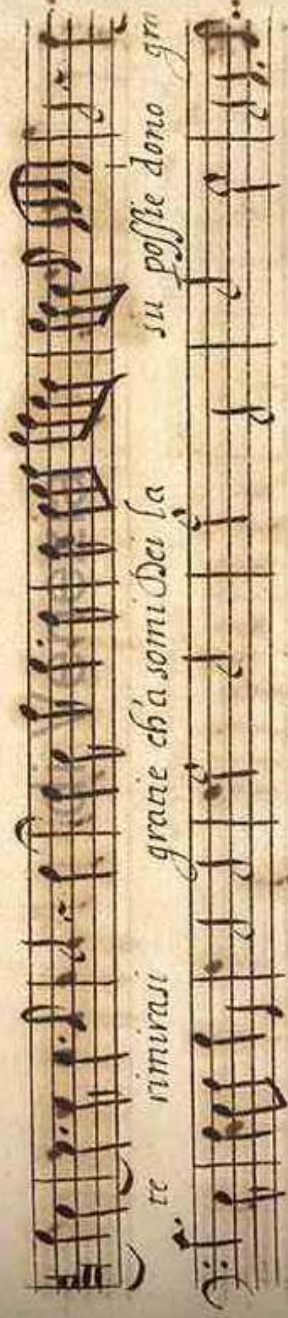 re rimirasi gratie ch'a somi Dei la su possie dono gra